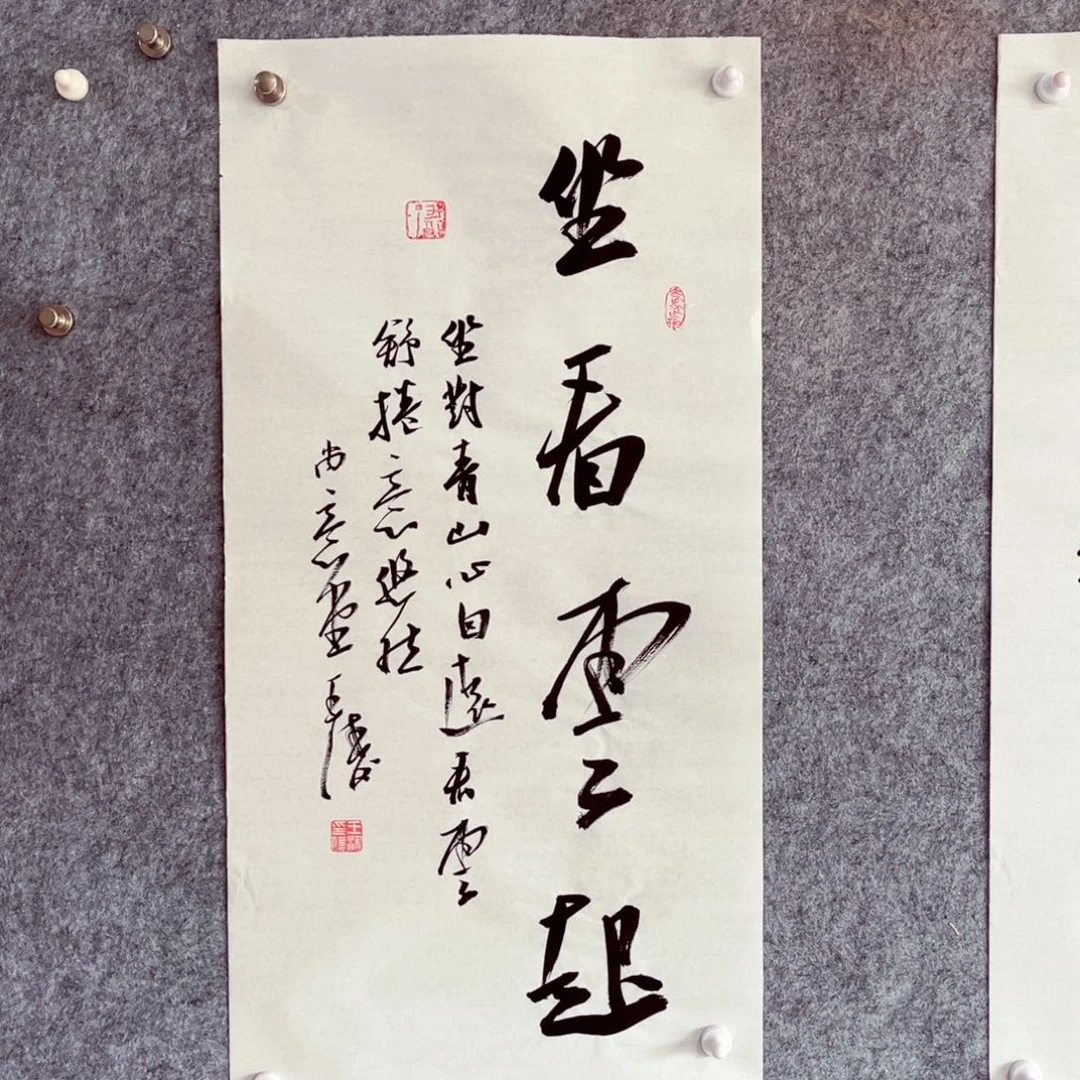 坐看雲起
坐對青山心自遠看雲
舒捲意悠然
尚意堂王濤